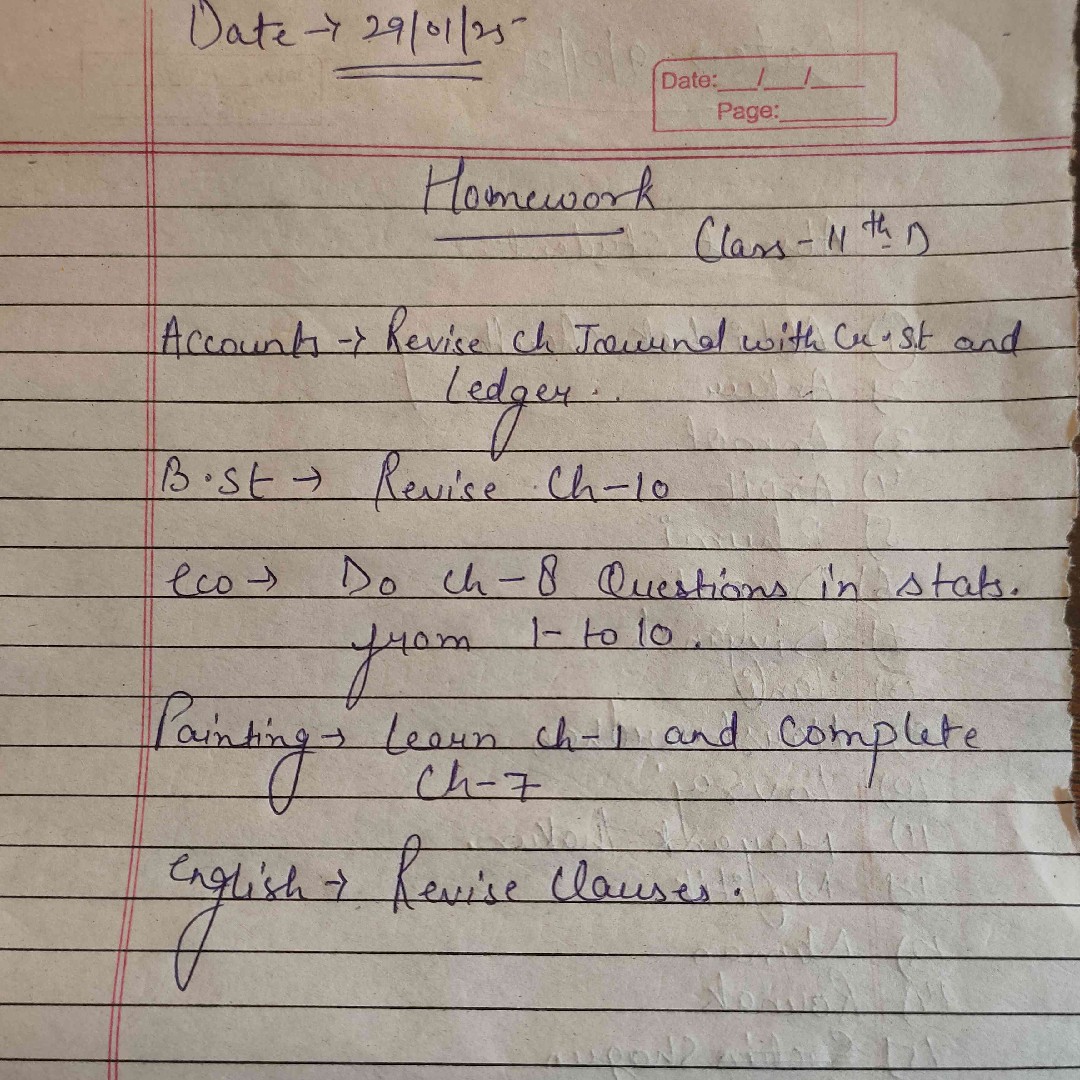 Date → 29/01/25
Date: __/__/__
Page: ______
Homework
Class - 11th D
Accounts → Revise Ch Journal with G.st and
Ledger.
B.St → Revise Ch-10
eco → Do ch-8 Questions in stats.
from 1- to 10.
Painting → Learn ch-1 and complete
Ch-7
English → Revise Clauses.